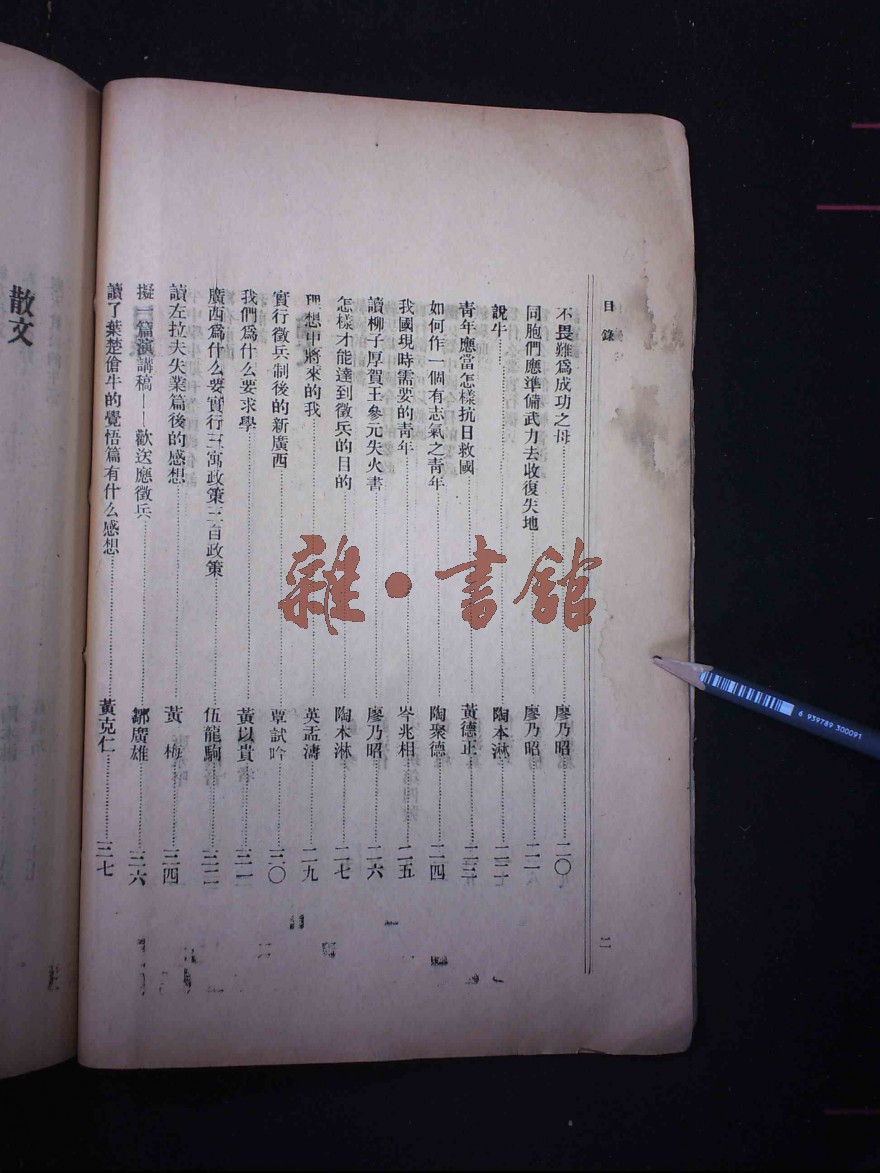 目錄
不畏難爲成功之母……廖乃昭……二〇
同胞們應準備武力去收復失地……廖乃昭……二一
說牛……陶本淋……二二
青年應當怎樣抗日救國……黃德正……二三
如何作一個有志氣之青年……陶聚德……二四
我國現時需要的青年……岑兆相……二五
讀柳子厚賀王參元失火書……廖乃昭……二六
怎樣才能達到徵兵的目的……陶本淋……二七
理想中將來的我……英孟濤……二九
實行徵兵制後的新廣西……覃試吟……三〇
我們爲什么要求學……黃以貴……三一
廣西爲什么要實行三寓政策三自政策……伍龍駒……三二
讀左拉夫失業篇後的感想……黃梅……三四
擬一篇演講稿——歡送應徵兵……鄒廣雄……三六
讀了葉楚傖牛的覺悟篇有什么感想……黃克仁……三七
二
散文
雜·書館
6 939789 300091